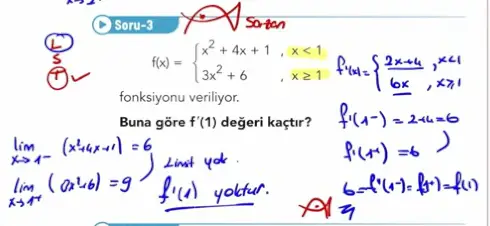 Soru-3
Sazan
L
S
T
f(x) = { x² + 4x + 1 , x < 1
3x² + 6 , x ≥ 1
f'(x) = { 2x+4 , x<1
6x , x≥1
fonksiyonu veriliyor.
Buna göre f'(1) değeri kaçtır?
f'(1⁻) = 2+4 = 6
f'(1⁺) = 6
lim x→1⁻ (x²+4x+1) = 6
Limit yok.
lim x→1⁺ (3x²+6) = 9
f'(1) yoktur.
6 = f'(1⁻) = f'(1⁺) = f'(1)